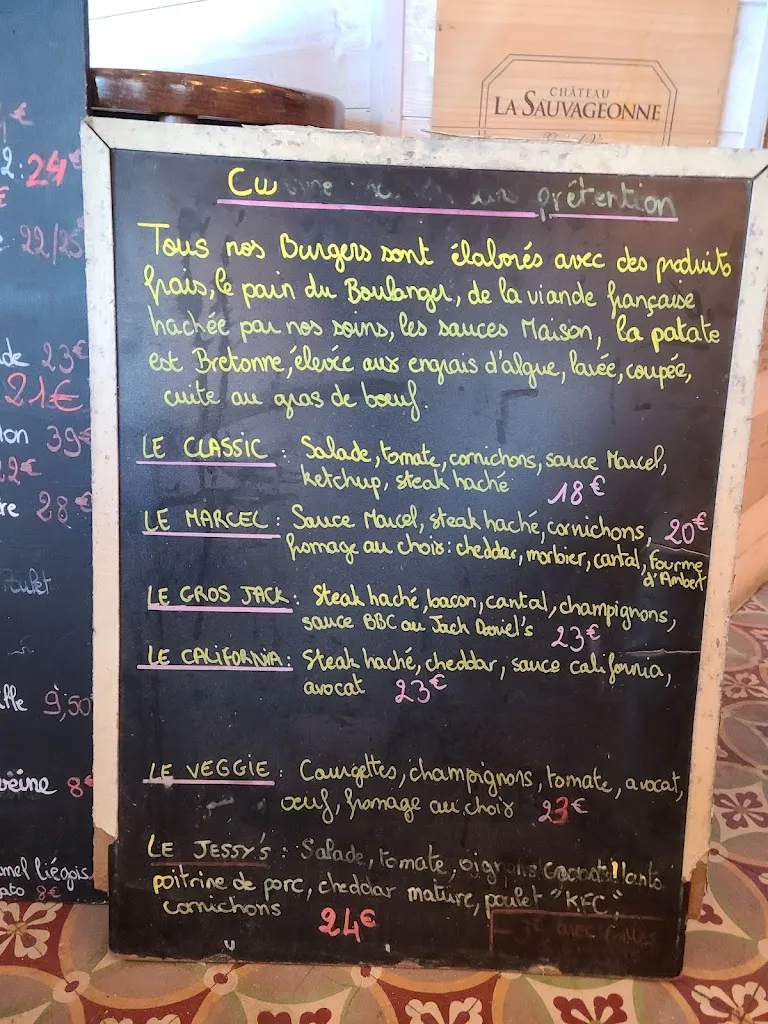 CHÂTEAU
LA SAUVAGEONNE
prétention
Tous nos Burgers sont élaborés avec des produits
frais, le pain du Boulanger, de la viande française
hachée par nos soins, les sauces Maison, la patate
est Bretonne, élevée aux engrais d'algue, lavée, coupée,
cuite au gras de boeuf.
LE CLASSIC : Salade, tomate, cornichons, sauce Marcel,
ketchup, steak haché 18€
LE MARCEL : Sauce Marcel, steak haché, cornichons, 20€
fromage au choix : cheddar, morbier, cantal, fourme
d'Ambert
LE GROS JACK : Steak haché, bacon, cantal, champignons,
sauce BBC au Jack Daniel's 23€
LE CALIFORNIA : Steak haché, cheddar, sauce california,
avocat 23€
LE VEGGIE : Courgettes, champignons, tomate, avocat,
oeuf, fromage au choix 23€
LE JESSY'S : Salade, tomate, oignons
poitrine de porc, cheddar mature, poulet "KFC",
cornichons 24€
2 : 24€
22/25
23€
21€
39€
22€
28€
9,50
8€
liégois
8€